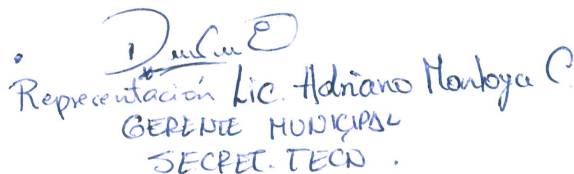 Representación Lic. Adriano Montoya C.
GERENTE MUNICIPAL
SECRET. TECN.